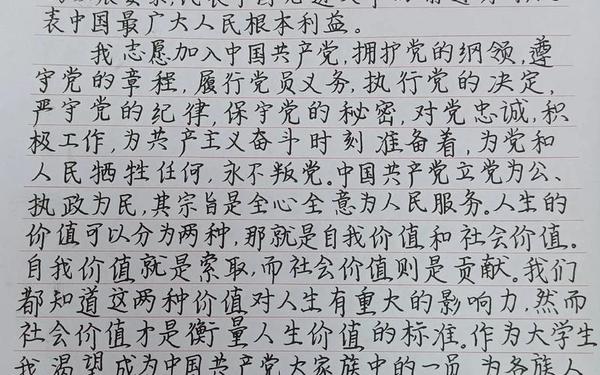 表中国最广大人民根本利益。
我志愿加入中国共产党,拥护党的纲领,遵
守党的章程,履行党员义务,执行党的决定,
严守党的纪律,保守党的秘密,对党忠诚,积
极工作,为共产主义奋斗时刻准备着,为党和
人民牺牲任何,永不叛党。中国共产党立党为公、
执政为民,其宗旨是全心全意为人民服务。人生的
价值可以分为两种,那就是自我价值和社会价值。
自我价值就是索取,而社会价值则是贡献。我们
都知道这两种价值对人生有重大的影响力,然而
社会价值才是衡量人生价值的标准。作为大学生
我渴望成为中国共产党大家族中的一员,为各族人